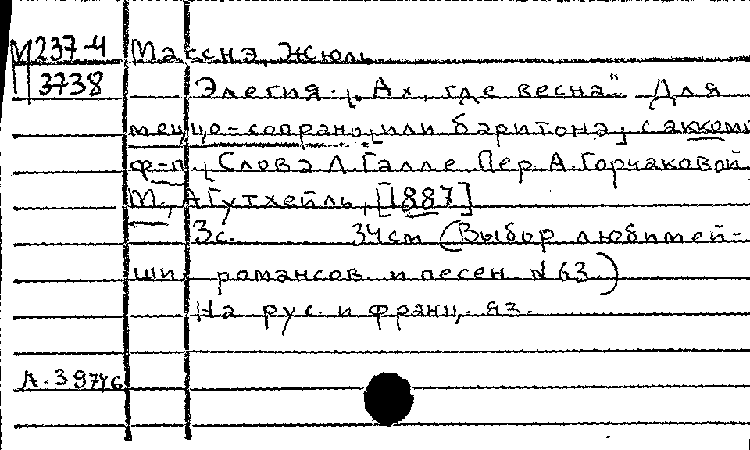 М 237-4 Массне, Жюль
3738 Элегия. „Ах, где весна“ Для
меццо-сопрано [или баритона] с акком.
ф-п. [Слова Л. Галле Пер. А. Горчаковой
М., А Гутхейль, [1887]
3с. 34см (Выбор любимей-
ших романсов и песен N 63)
На рус. и франц. яз.
А. 39746